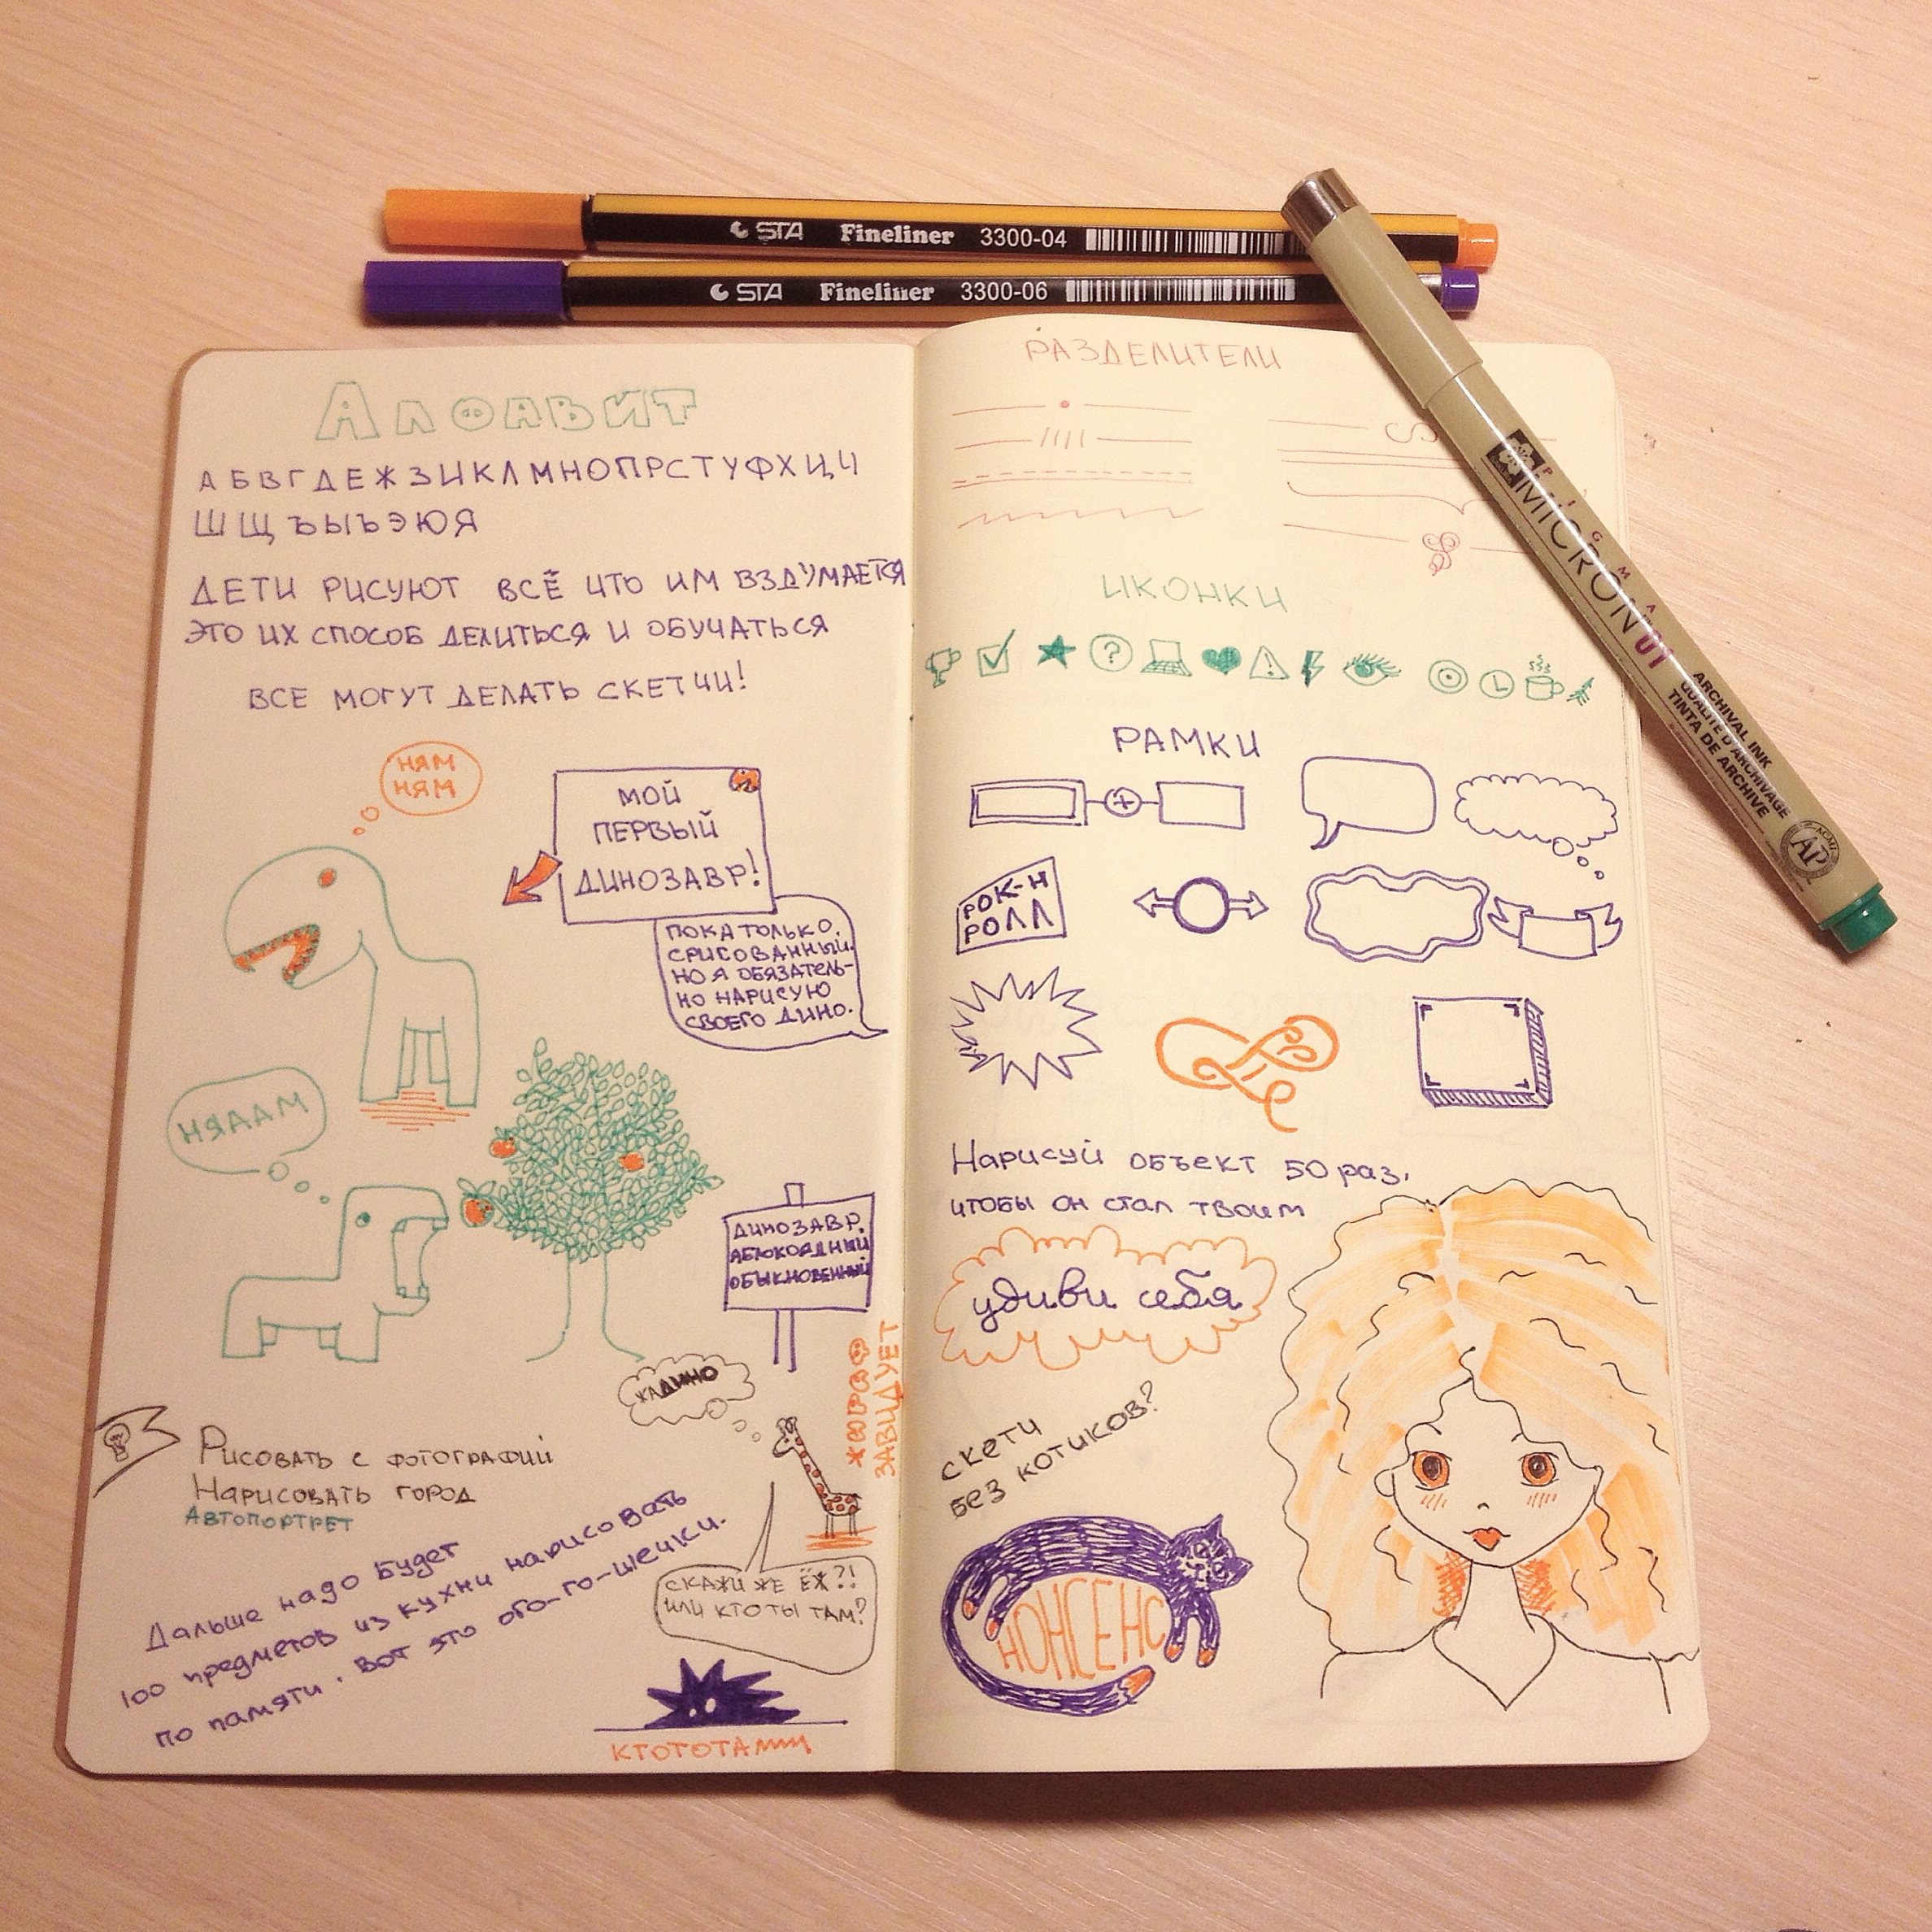 STA Fineliner 3300-04
STA Fineliner 3300-06
PIGMA
MICRON 01
ARCHIVAL INK
QUALITÉ D'ARCHIVAGE
TINTA DE ARCHIVE
ACMI
AP
АЛФАВИТ
А Б В Г Д Е Ж З И К Л М Н О П Р С Т У Ф Х Ц Ч
Ш Щ Ъ Ы Ъ Э Ю Я
ДЕТИ РИСУЮТ ВСЁ ЧТО ИМ ВЗДУМАЕТСЯ
ЭТО ИХ СПОСОБ ДЕЛИТЬСЯ И ОБУЧАТЬСЯ
ВСЕ МОГУТ ДЕЛАТЬ СКЕТЧИ!
НЯМ
НЯМ
МОЙ
ПЕРВЫЙ
ДИНОЗАВР!
ПОКА ТОЛЬКО
СРИСОВАННЫЙ.
НО Я ОБЯЗАТЕЛЬ-
НО НАРИСУЮ
СВОЕГО ДИНО.
НЯААМ
ДИНОЗАВР.
ЯБЛОКОЯДНЫЙ
ОБЫКНОВЕННЫЙ
ЖИРАФ
ЗАВИДУЕТ
РИСОВАТЬ С ФОТОГРАФИЙ
НАРИСОВАТЬ ГОРОД
АВТОПОРТРЕТ
Дальше надо будет
100 предметов из кухни нарисовать
по памяти. Вот это ого-го-шечки.
СКАЖИ ЖЕ ЁЖ?!
ИЛИ КТО ТЫ ТАМ?
КТОТОТАМ
РАЗДЕЛИТЕЛИ
ИКОНКИ
?
!
РАМКИ
РОК-Н
РОЛЛ
Нарисуй объект 50 раз,
чтобы он стал твоим
удиви себя
СКЕТЧ
БЕЗ КОТИКОВ?
НОНСЕНС